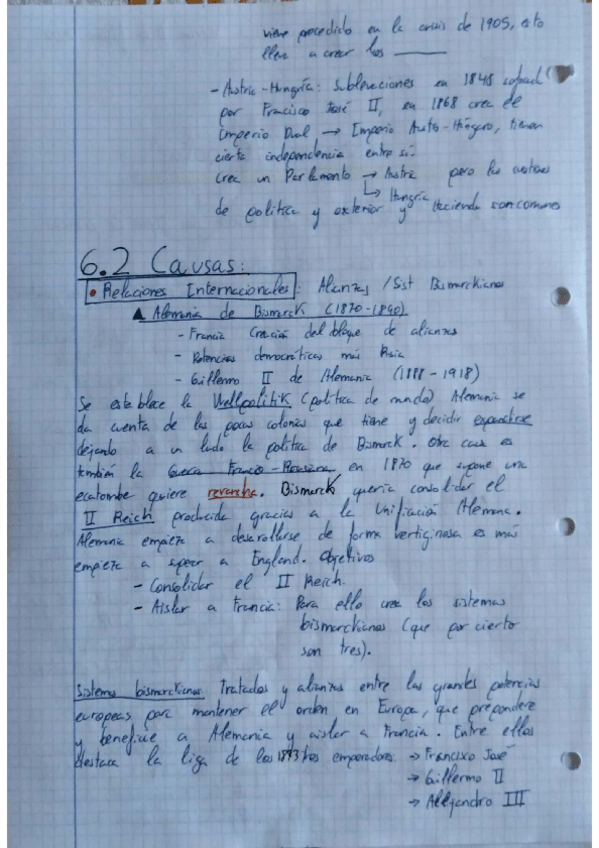 viene precedido en la crisis de 1905, esto
lleva a crear los ______
- Austria-Hungría: Sublevaciones en 1848
por Francisco José II, en 1868 crea el
Imperio Dual → Imperio Austro-Húngaro, tienen
cierta independencia entre sí.
crea un Parlamento → Austria pero las
↳ Hungría
de politica y exterior y Hacienda son comunes
6.2 Causas:
• Relaciones Internacionales: Alianzas / Sist Bismarckianos
▲ Alemania de Bismarck (1870-1890)
- Francia Creación del bloque de alianzas
- Potencias democráticas más Rusia
- Guillermo II de Alemania (1888-1918)
Se establece la Wellpolitik (politica de mundo) Alemania se
da cuenta de las pocas colonias que tiene y decidir expandirse
dejando a un lado la politica de Bismarck. Otra causa es
también la Guerra Franco-Prusiana en 1870 que supone una
ecatombe quiere revancha. Bismarck quería consolidar el
II Reich producida gracias a la Unificación Alemana.
Alemania empieza a desarollarse de forma vertiginosa es más
empieza a England. Objetivos
- Consolidar el II Reich.
- Aislar a Francia: Para ello crea los sistemas
bismarckianos (que por cierto
son tres).
Sistemas bismarckianos Tratados y alianzas entre las grandes potencias
europeas para mantener el orden en Europa, que prepondere
y beneficie a Alemania y aislar a Francia. Entre ellos
destaca la liga de los 1873 tres emperadores → Francisco José
→ Guillermo II
→ Alejandro III